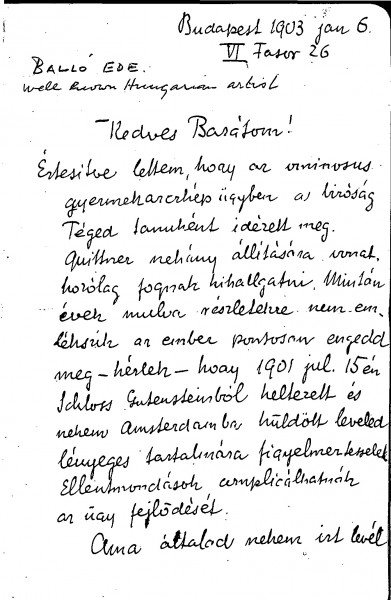 Budapest 1903 jan 6.
VI Fasor 26
BALLÓ EDE.
well known Hungarian artist
Kedves Barátom!
Értesitve lettem, hogy az ominosus
gyermekarczkép ügyben a biróság
Téged tanuként idézett meg.
Quittner nehány állitására vonat-
kozólag fognak kihallgatni. Miután
évek mulva részletekre nem em-
lékszik az ember pontosan engedd
meg - kérlek - hogy 1901 jul. 15én
Schloss Gutensteinból keltezett és
nekem Amsterdamba küldött leveled
lényeges tartalmára figyelmeztesselek
Ellentmondások complicálhatnák
az ügy fejlődését.
Ama általad nekem irt levél